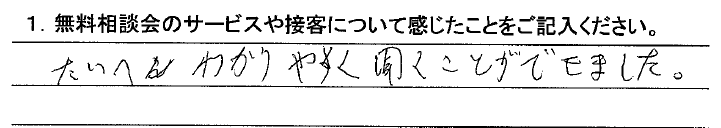 1. 無料相談会のサービスや接客について感じたことをご記入ください。
たいへん わかりやすく聞くことができました。